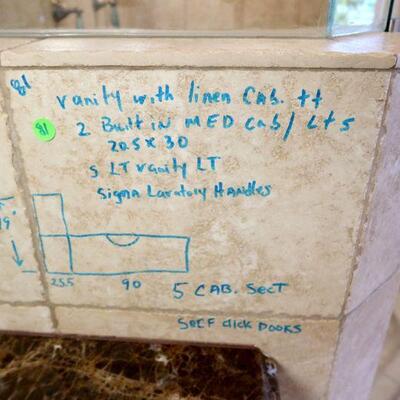 81
vanity with linen CAB. tt
81
2 Built in MED Cab/Lts
20.5 x 30
5 LT vanity LT
Sigma Lavatory HANdles
25.5
90
5 CAB. SecT
SOFF click DOORS